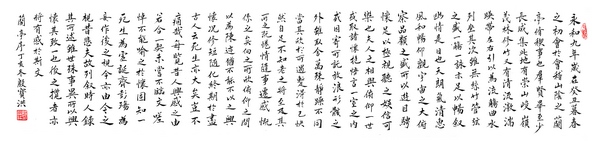 永和九年歲在癸丑暮春
之初會于會稽山陰之蘭
亭脩稧事也群賢畢至少
長咸集此地有崇山峻嶺
茂林脩竹又有清流激湍
映帶左右引以為流觴曲水
列坐其次雖無絲竹管弦
之盛一觴一詠亦足以暢敘
幽情是日也天朗氣清惠
風和暢仰觀宇宙之大俯
察品類之盛所以遊目騁
懷足以極視聽之娛信可
樂也夫人之相與俯仰一世
或取諸懷抱悟言一室之內
或因寄所託放浪形骸之
外雖趣舍萬殊靜躁不同
當其欣於所遇蹔得於己快
然自足不知老之將至及其
所之既惓情隨事遷感慨
係之矣向之所欣俛仰之間
以為陳迹猶不能不以之興
懷況脩短隨化終期於盡
古人云死生亦大矣豈不
痛哉每覽昔人興感之由
若合一契未嘗不臨文嗟
悼不能喻之於懷固知一
死生為虛誕齊彭殤為
妄作後之視今亦由今之
視昔悲夫故列敘時人錄
其所述雖世殊事異所以興
懷其致一也後之攬者亦
將有感於斯文
蘭亭序丁亥冬殷寶洪